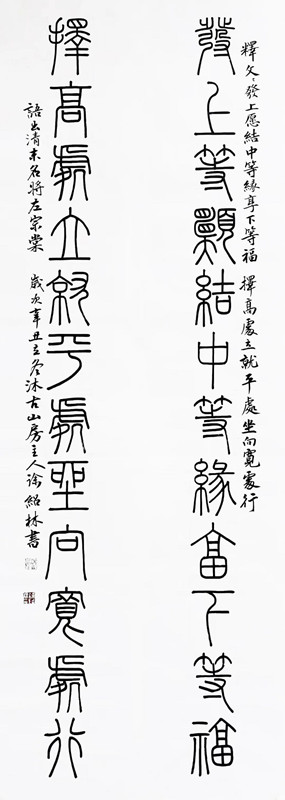 釋文：發上愿結中等緣享下等福 擇高處立就平處坐向寬處行
發上等願結中等緣享下等福
擇高處立就平處坐向寬處行
語出清末名將左宗棠 歲次辛丑立冬沐古山房主人徐紹林書